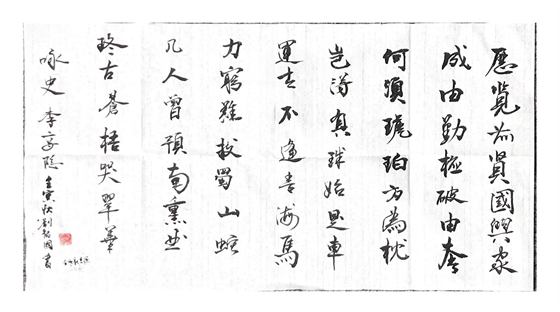 歷覽前賢國與家
成由勤儉破由奢
何須琥珀方為枕
豈得真珠始是車
運去不逢青海馬
力窮難拔蜀山蛇
几人曾預南熏曲
終古蒼梧哭翠華
咏史 李商隱 壬寅秋劉國書